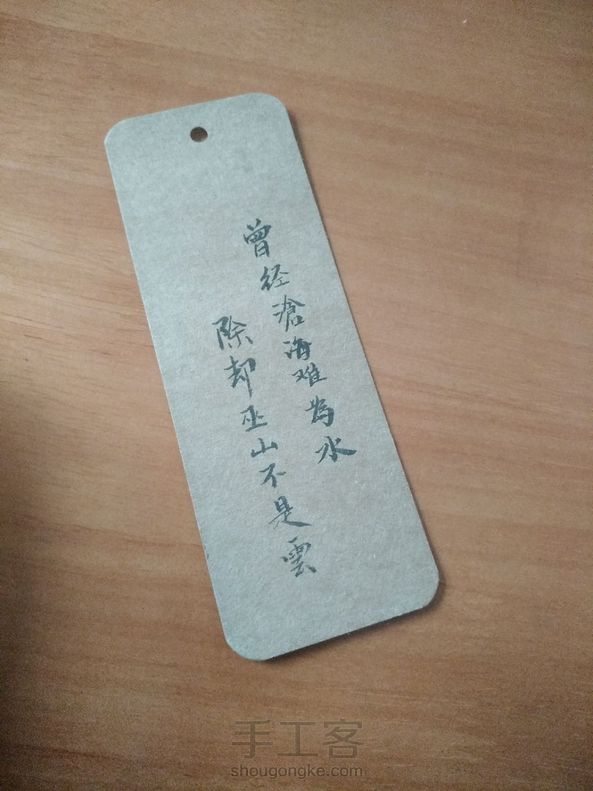 曾经滄海难為水
除却巫山不是雲
手工客
shougongke.com